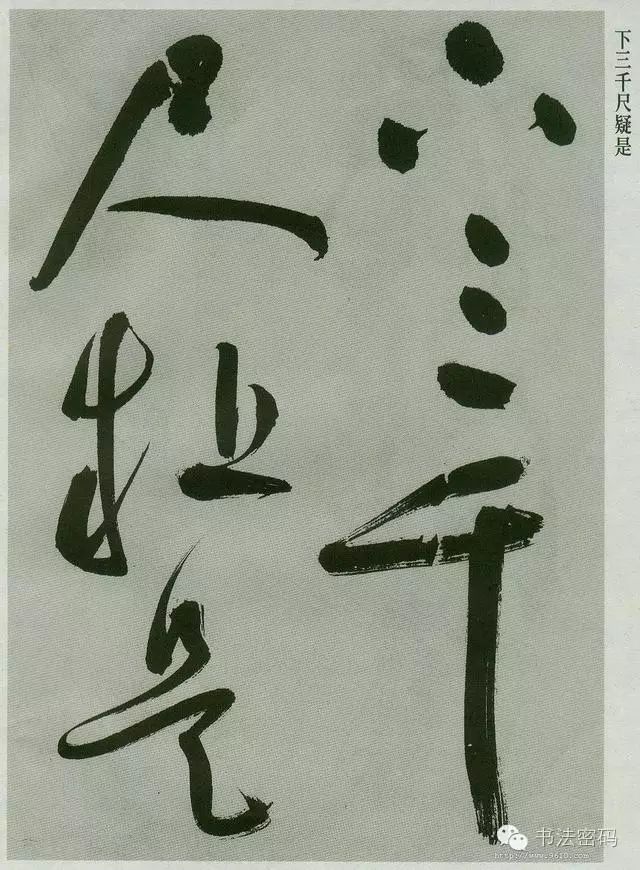 下三千
尺疑是
下三千尺疑是
书法密码
http://www.9610.com